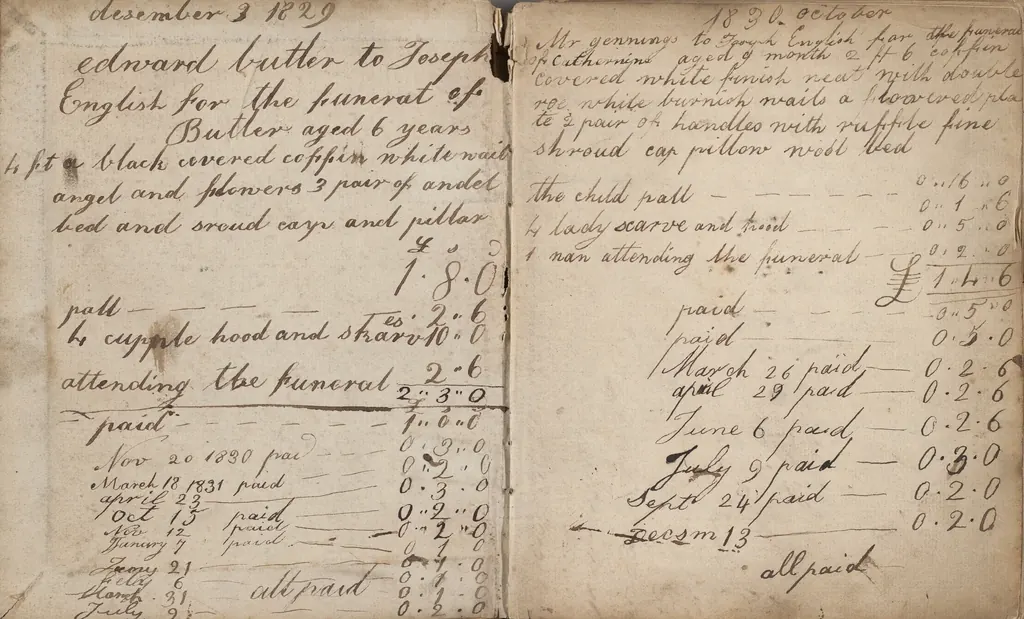 desember 3 1829
edward butter to Joseph
English for the funerat of
Butter aged 6 years
4 ft a black covered coffin white nail
angel and flowers 3 pair of andel
bed and sroud cap and pillar
£ s 0
1 . 8 . 0
patt — — — — 2 " 6
4 cupple hood and skarves 10 " 0
attending the funeral 2 " 6
2 " 3 " 0
paid - - - - 1 " 0 " 0
Nov 20 1830 paid 0 . 3 . 0
March 18 1831 paid 0 " 2 " 0
april 23 0 . 3 . 0
Oct 15 paid 0 " 2 " 0
Nov 12 paid 0 " 2 " 0
January 7 paid 0 1 0
Jany 21 0 . 1 . 0
Feby 6 0 . 1 . 0
March 31 all paid 0 . 1 . 0
July 9 0 . 2 . 0
1830 october
Mr gennings to Joseph English for the funeral
of Catherine aged 9 month 2 ft 6 coffin
covered white finish neat with double
roe white burnish nails a flowered pla
te 2 pair of handles with ruffle fine
shroud cap pillow wool bed
0 " 16 " 0
the child patt — — — 0 " 1 " 6
4 lady scarve and hood — — 0 " 5 " 0
1 nan attending the funeral — 0 . 2 . 0
£ 1 " 4 " 6
paid — — 0 " 5 " 0
paid — — 0 . 5 . 0
March 26 paid — 0 . 2 . 6
april 29 paid — 0 . 2 . 6
June 6 paid — 0 . 2 . 6
July 9 paid — 0 . 3 . 0
Sept 24 paid — 0 . 2 . 0
Decsm 13 — 0 . 2 . 0
all paid